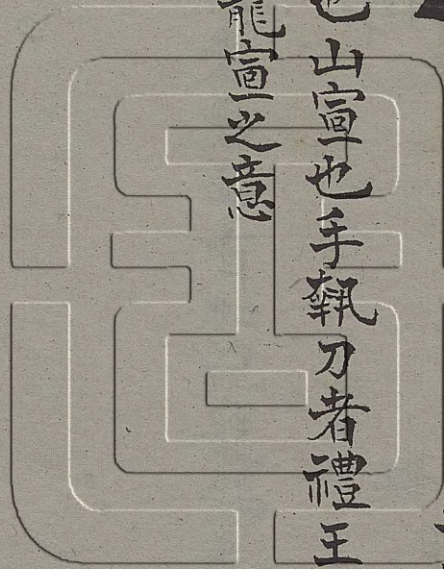 也山宣也手執刀者禮王
能宣之意